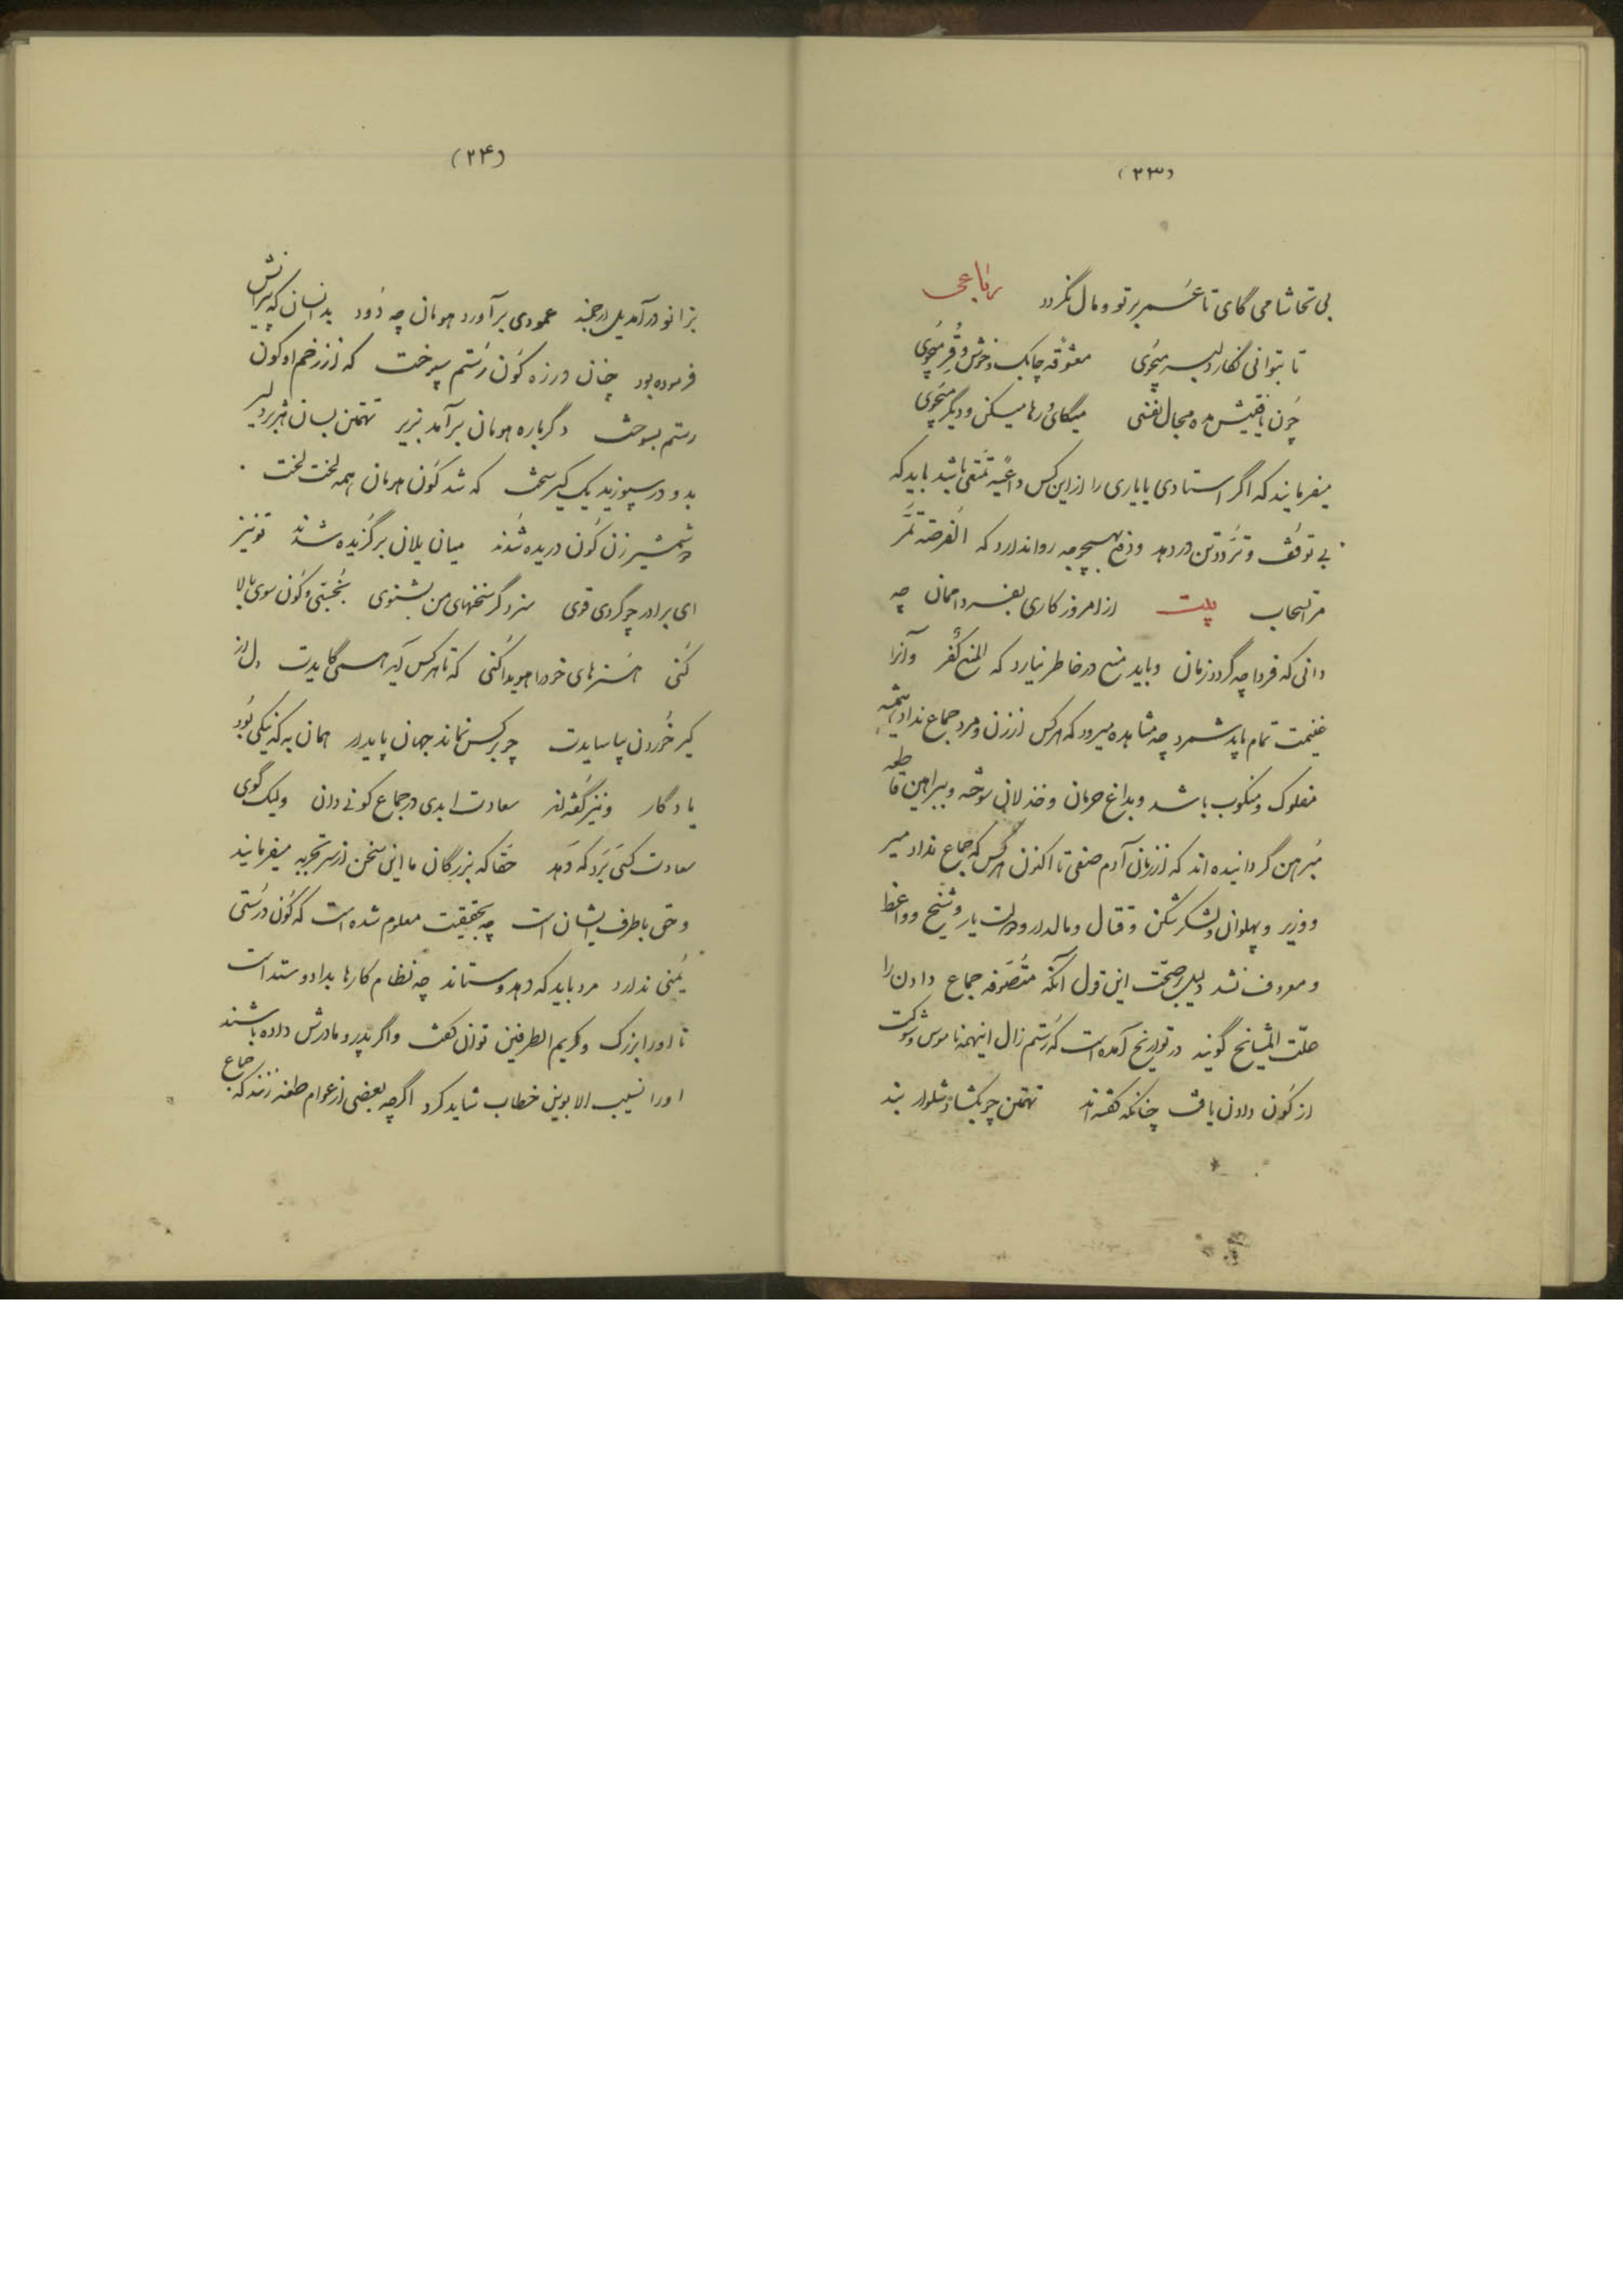 (۲۳)
بی تحاشا می گای تا عمر بر تو وبال نگردد رباعی
تا بتوانی نگار دلبر میجوی معشوقه چابک و خوش و فر میجوی
چون یافتیش مده مجال نفسی میگای و رها میکن و دیگر میجوی
میفرمایند که اگر استادی یا یاری را از این کس داعیه تمتعی باشد باید که
بی توقف و تردد تن در دهد و دفع بهیچوجه روا ندارد که الفرصه تمر
مر السحاب بیت از امروز کاری بفردا ممان چه
دانی که فردا چه گردد زمان و باید منع در خاطر نیارد که المنع کفر و آنرا
غنیمت تمام باید شمرد چه مشاهده میرود که هر کس از زن و مرد جماع نداد همیشه
مفلوک و منکوب باشد و بداغ حرمان و خذلان سوخته و ببراهین قاطعه
مبرهن گردانیده اند که از زمان آدم صفی تا اکنون هر کس که جماع نداد میر
و وزیر و پهلوان و لشکرشکن و قتال و مالدار و دولت یار و شیخ و واعظ
و معروف نشد دلیل بر صحت این قول آنکه متصوفه جماع دادن را
علت المشایخ گویند در تواریخ آمده است که رستم زال اینهمه ناموس و شوکت
از کون دادن یافت چنانکه گفته اند تهمتن چو بگشاد شلوار بند
(۲۴)
بزانو درآمد یل ارجمند عمودی برآورد هومان چه دود بدانسان که پیرانش
فرموده بود چنان در زه کون رستم سپوخت که از زخم او کون
رستم بسوخت دگرباره هومان برآمد بزیر تهمتن بسان هژبر دلیر
بدو در سپوزید یک کیر سخت که شد کون هومان همه لخت لخت
دو شمشیر زن کون دریده شدند میان یلان برگزیده شدند تو نیز
ای برادر چو گردی قوی سزد گر سخنهای من بشنوی بخسبی و کون سوی بالا
کنی هنرهای خود را هویدا کنی که تا هر کس آید همی گایدت دل از
کیر خوردن بیاسایدت چو بر کس نماند جهان پایدار همان به که نیکی بود
یادگار و نیز گفته اند سعادت ابدی در جماع کونی دان ولیک گوی
سعادت کسی برد که دهد حقا که بزرگان ما این سخن از سر تجربه میفرمایند
و حق با طرف ایشان است چه بحقیقت معلوم شده است که کون درستی
یمنی ندارد مرد باید که دهد و ستاند چه نظام کارها بداد و ستد است
تا او را بزرگ و کریم الطرفین توان گفت و اگر پدر و مادرش داده باشند
او را نسیب الابوین خطاب شاید کرد اگرچه بعضی از عوام طعنه زنند که جماع